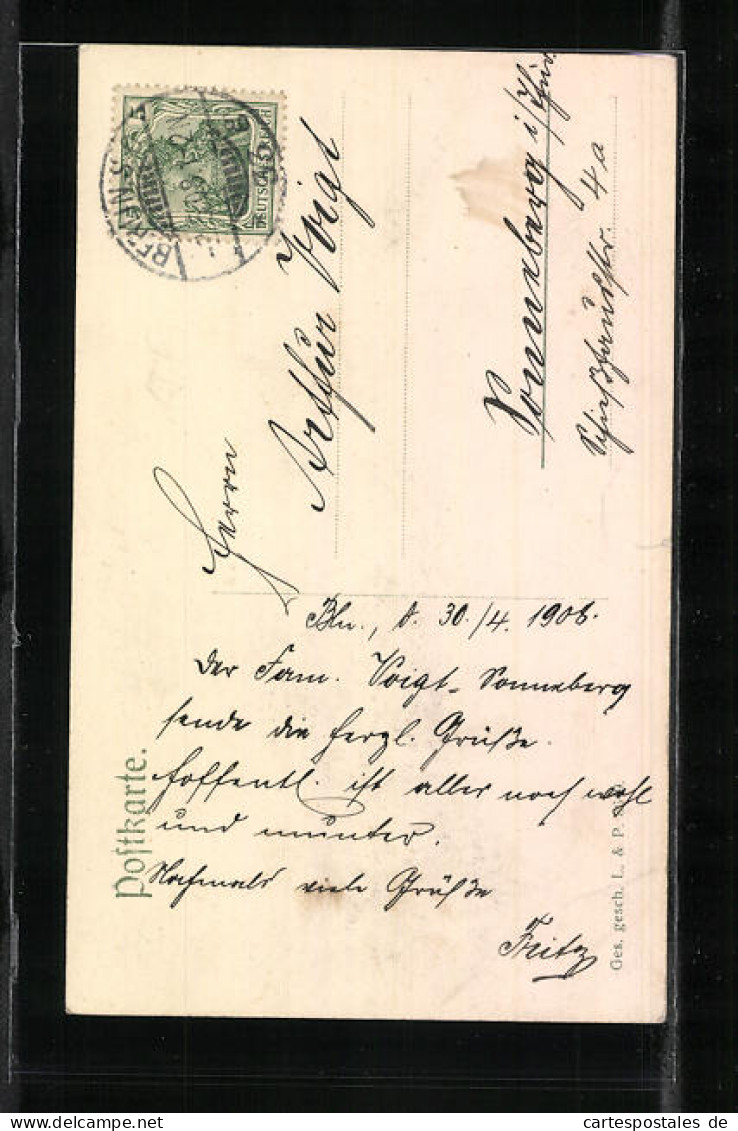 Postkarte.
5
DEUTSCHES REICH
BERLIN
Herrn
Arthur Voigt
Sonneberg i/Thür.
Schießhausstr. 4a
Bln., d. 30./4. 1906.
Der Fam. Voigt-Sonneberg
sende die herzl. Grüße.
Hoffentl. ist alles noch wohl
und munter.
Nochmals viele Grüße
Fritz
Ges. gesch. L. & P.
www.cartespostales.de
cartespostales de